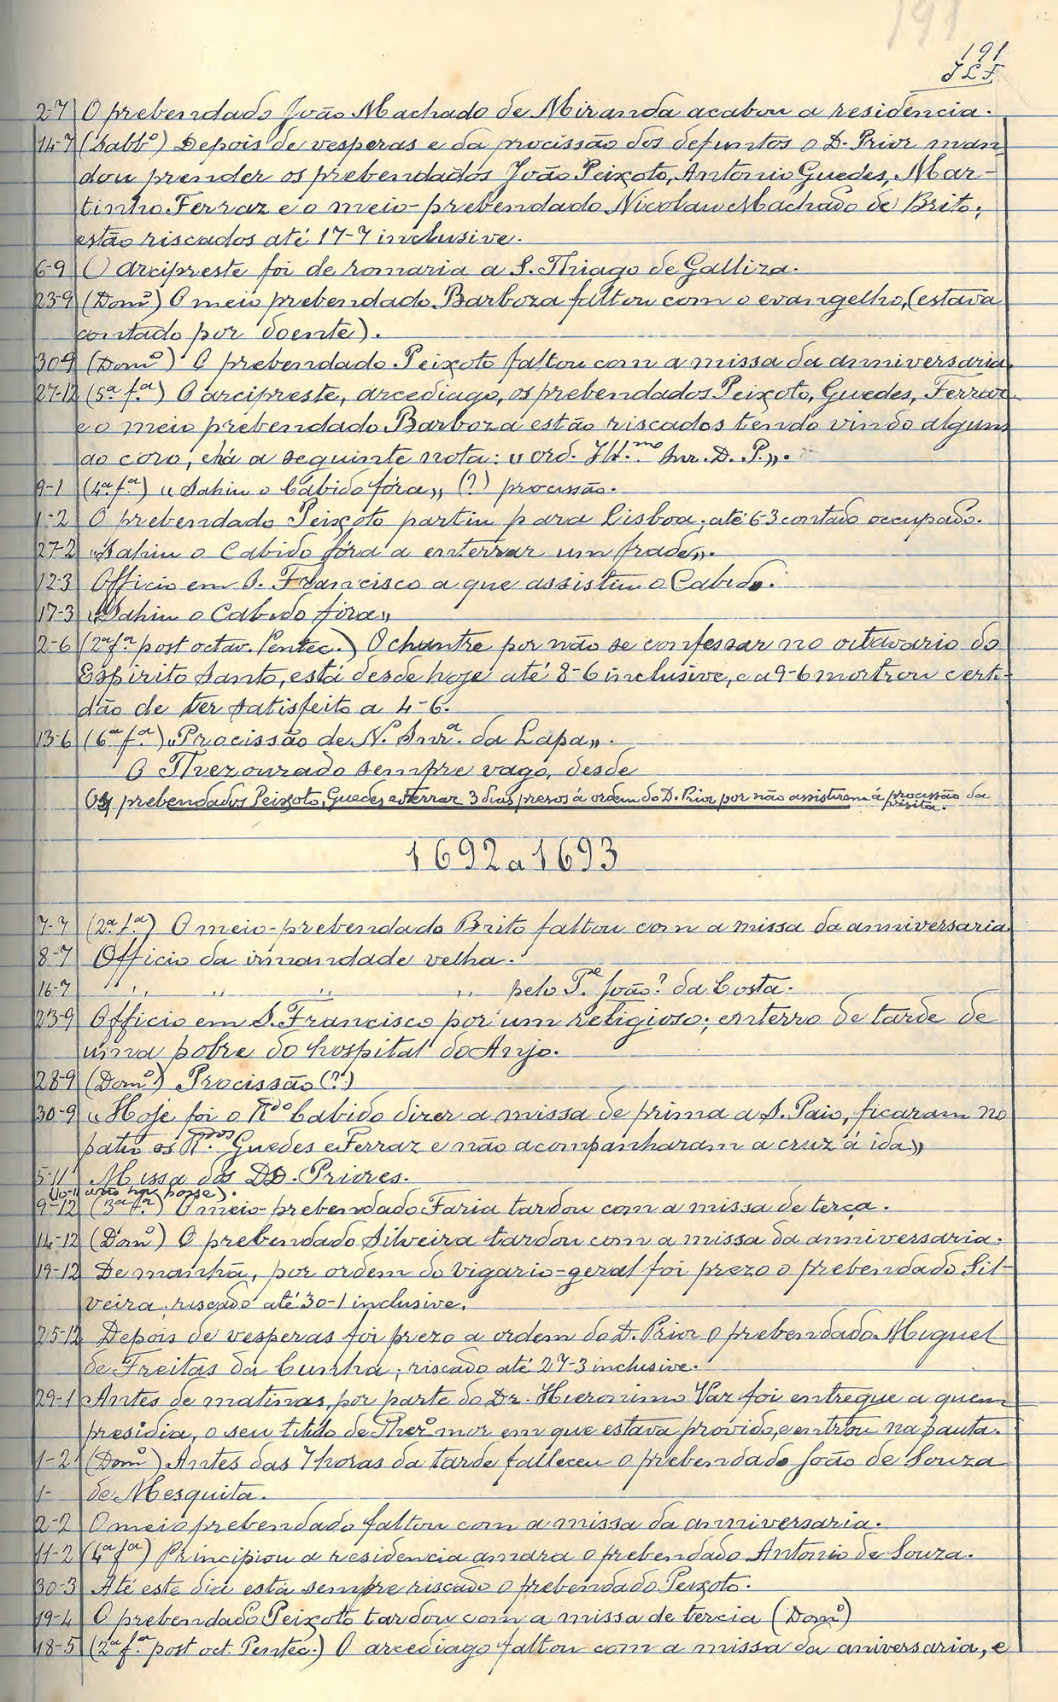 191
191
J L F
2-7 O prebendado João Machado de Miranda acabou a residencia.
14-7 (Sabb.º) Depois de vesperas e da procissão dos defuntos o D. Prior man-
dou prender os prebendados João Peixoto, Antonio Guedes, Mar-
tinho Ferraz e o meio-prebendado Nicolau Machado de Brito;
estão riscados até 17-7 inclusive.
6-9 O arcipreste foi de romaria a S. Thiago de Galliza.
23-9 (Domº) O meio prebendado Barboza faltou com o evangelho, (estava
contado por doente).
30-9 (Domº) O prebendado Peixoto faltou com a missa da anniversaria
27-12 (5ª fª) O arcipreste, arcediago, os prebendados Peixoto, Guedes, Ferraz
e o meio prebendado Barboza estão riscados tendo vindo algum
ao coro, e há a seguinte nota: "ord. Ill.mo Snr. D. P.".
9-1 (4ª fª) "Sahiu o Cabido fóra" (?) procissão.
1-2 O prebendado Peixoto partiu para Lisboa; até 6-3 contado occupado.
27-2 "Sahiu o Cabido fóra a enterrar um frade".
12-3 Officio em S. Francisco a que assistiu o Cabido.
17-3 "Sahiu o Cabido fóra"
2-6 (2ª fª post octav. Pentec.) O chantre por não se confessar no oitavario do
Espirito Santo, está desde hoje até 8-6 inclusive, e a 9-6 mostrou certi-
dão de ter satisfeito a 4-6.
13-6 (6ª fª) "Procissão de N. Snrª. da Lapa".
O Thezourado sempre vago, desde
Os prebendados Peixoto, Guedes e Ferraz 3 dias presos á ordem do D. Prior por não assistirem á procissão da
visita.
1692 a 1693
7-7 (2ª fª) O meio-prebendado Brito faltou com a missa da anniversaria
8-7 Officio da irmandade velha.
16-7 " " " " pelo Pe João? da Costa.
23-9 Officio em S. Francisco por um religioso; enterro de tarde de
uma pobre do hospital do Anjo.
28-9 (Domº) Procissão (?)
30-9 "Hoje foi o Rdo Cabido dizer a missa de prima a S. Paio, ficaram no
patio os R.dos Guedes e Ferraz e não acompanharam a cruz á ida"
5-11 Missa dos DD. Priores.
9-12 (3ª fª) O meio-prebendado Faria tardou com a missa de terça.
14-12 (Domº) O prebendado Silveira tardou com a missa da anniversaria.
19-12 De manhã, por ordem do vigario-geral foi prezo o prebendado Sil-
veira, riscado até 30-1 inclusive.
25-12 Depois de vesperas foi prezo a ordem do D. Prior o prebendado Miguel
de Freitas da Cunha; riscado até 27-3 inclusive.
29-1 Antes de matinas, por parte do Dr. Hieronimo Vaz foi entregue a quem
presidia, o seu titulo de Thesº mor em que estava provido, e entrou na pauta.
1-2 (Domº) Antes das 7 horas da tarde falleceu o prebendado João de Souza
1- de Mesquita.
2-2 O meio prebendado faltou com a missa da anniversaria.
11-2 (4ª fª) Principiou a residencia amara o prebendado Antonio de Souza.
30-3 Até este dia está sempre riscado o prebendado Peixoto.
19-4 O prebendado Peixoto tardou com a missa de tercia (Domº)
18-5 (2ª fª post oct. Pentec.) O arcediago faltou com a missa da aniversaria, e